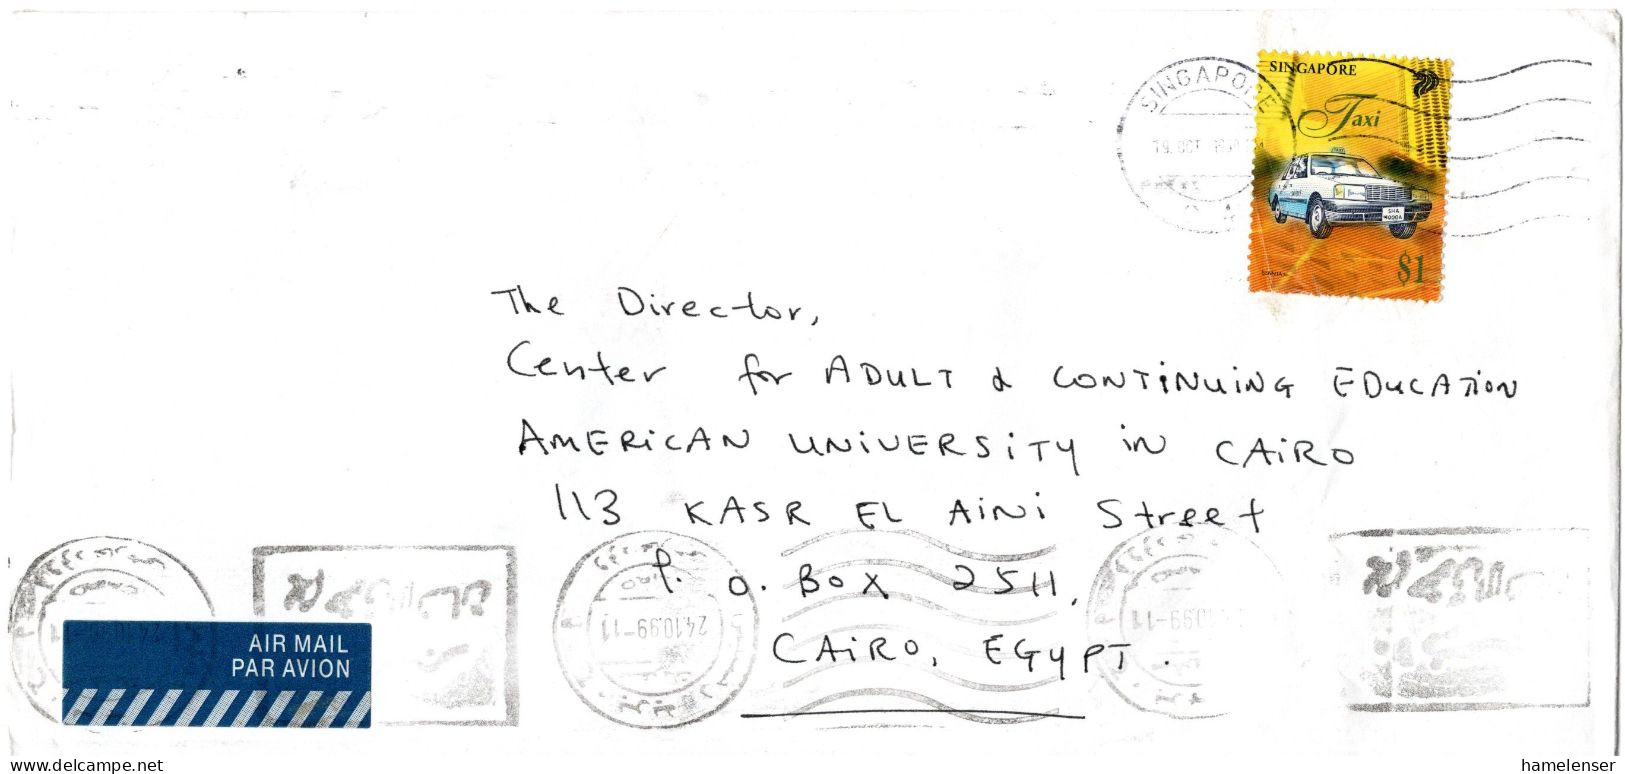 SINGAPORE
SINGAPORE
Taxi
TAXI
SHA 4000A
$1
The Director,
Center for ADULT & CONTINUING EDUCATION
AMERICAN UNIVERSITY in CAIRO
113 KASR EL AINI Street
P. O. Box 2511,
CAIRO, EGYPT.
24.10.99-11
CAIRO
AIR MAIL
PAR AVION
delcampe.net
hamelenser